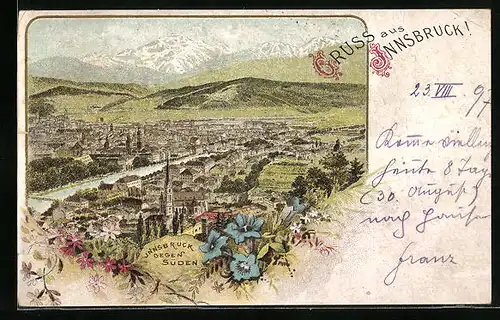 GRUSS aus INNSBRUCK!
23 VIII 97
Komme vielleicht
heute 8 Tage
(30. August)
nach Hause
Franz
INNSBRUCK
GEGEN
SÜDEN